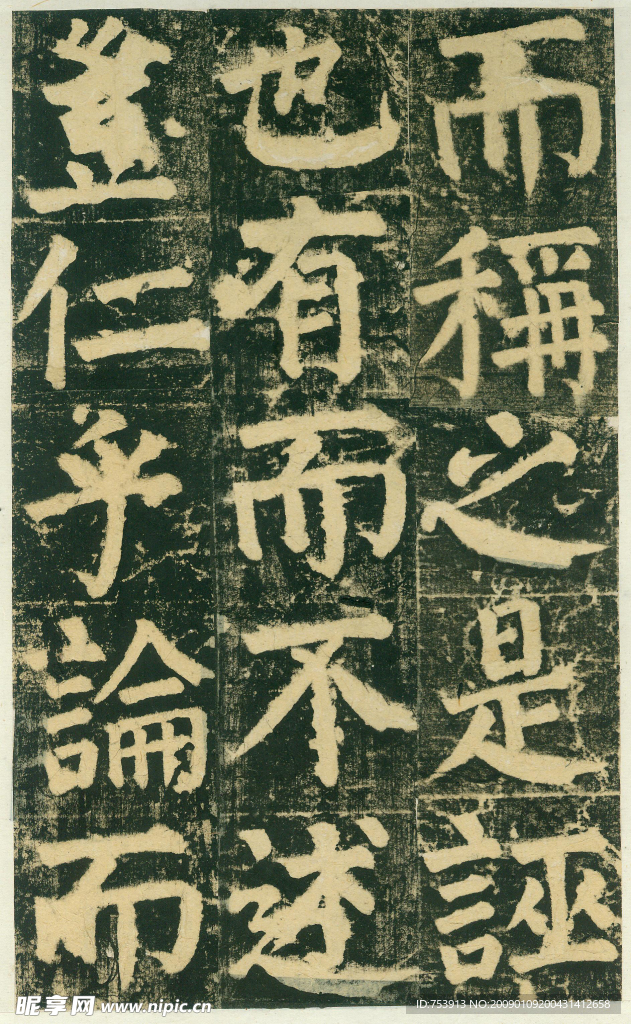 而稱之是誣
也有而不述
豈仁乎論而
昵享网 www.nipic.cn
ID:753913 NO:20090109200431412658